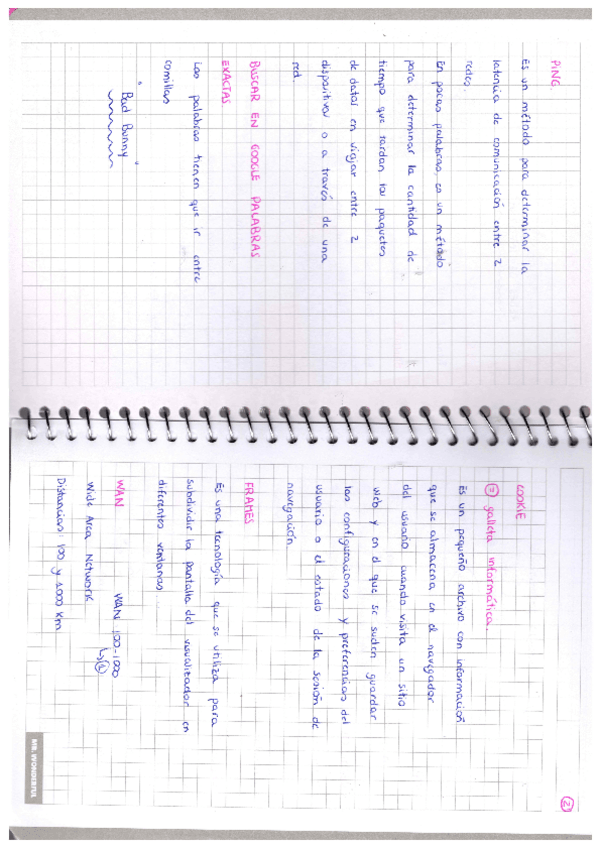 PING.
Es un método para determinar la
latencia de comunicación entre 2
redes.
En pocas palabras, es un método
para determinar la cantidad de
tiempo que tardan los paquetes
de datos en viajar entre 2
dispositivos o a través de una
red.
BUSCAR EN GOOGLE PALABRAS
EXACTAS.
Las palabras tienen que ir entre
comillas
" Bad Bunny "
2
COOKIE
galleta informática.
Es un pequeño archivo con información
que se almacena en el navegador
del usuario cuando visita un sitio
web y en el que se suelen guardar
las configuraciones y preferencias del
usuario o el estado de la sesión de
navegación
FRAMES
Es una tecnología que se utiliza para
subdividir la pantalla del visualizador en
diferentes ventanas...
WAN
WAN 100-1000
Wide Area Network.
Distancias: 100 y 1.000 Km
MR. WONDERFUL